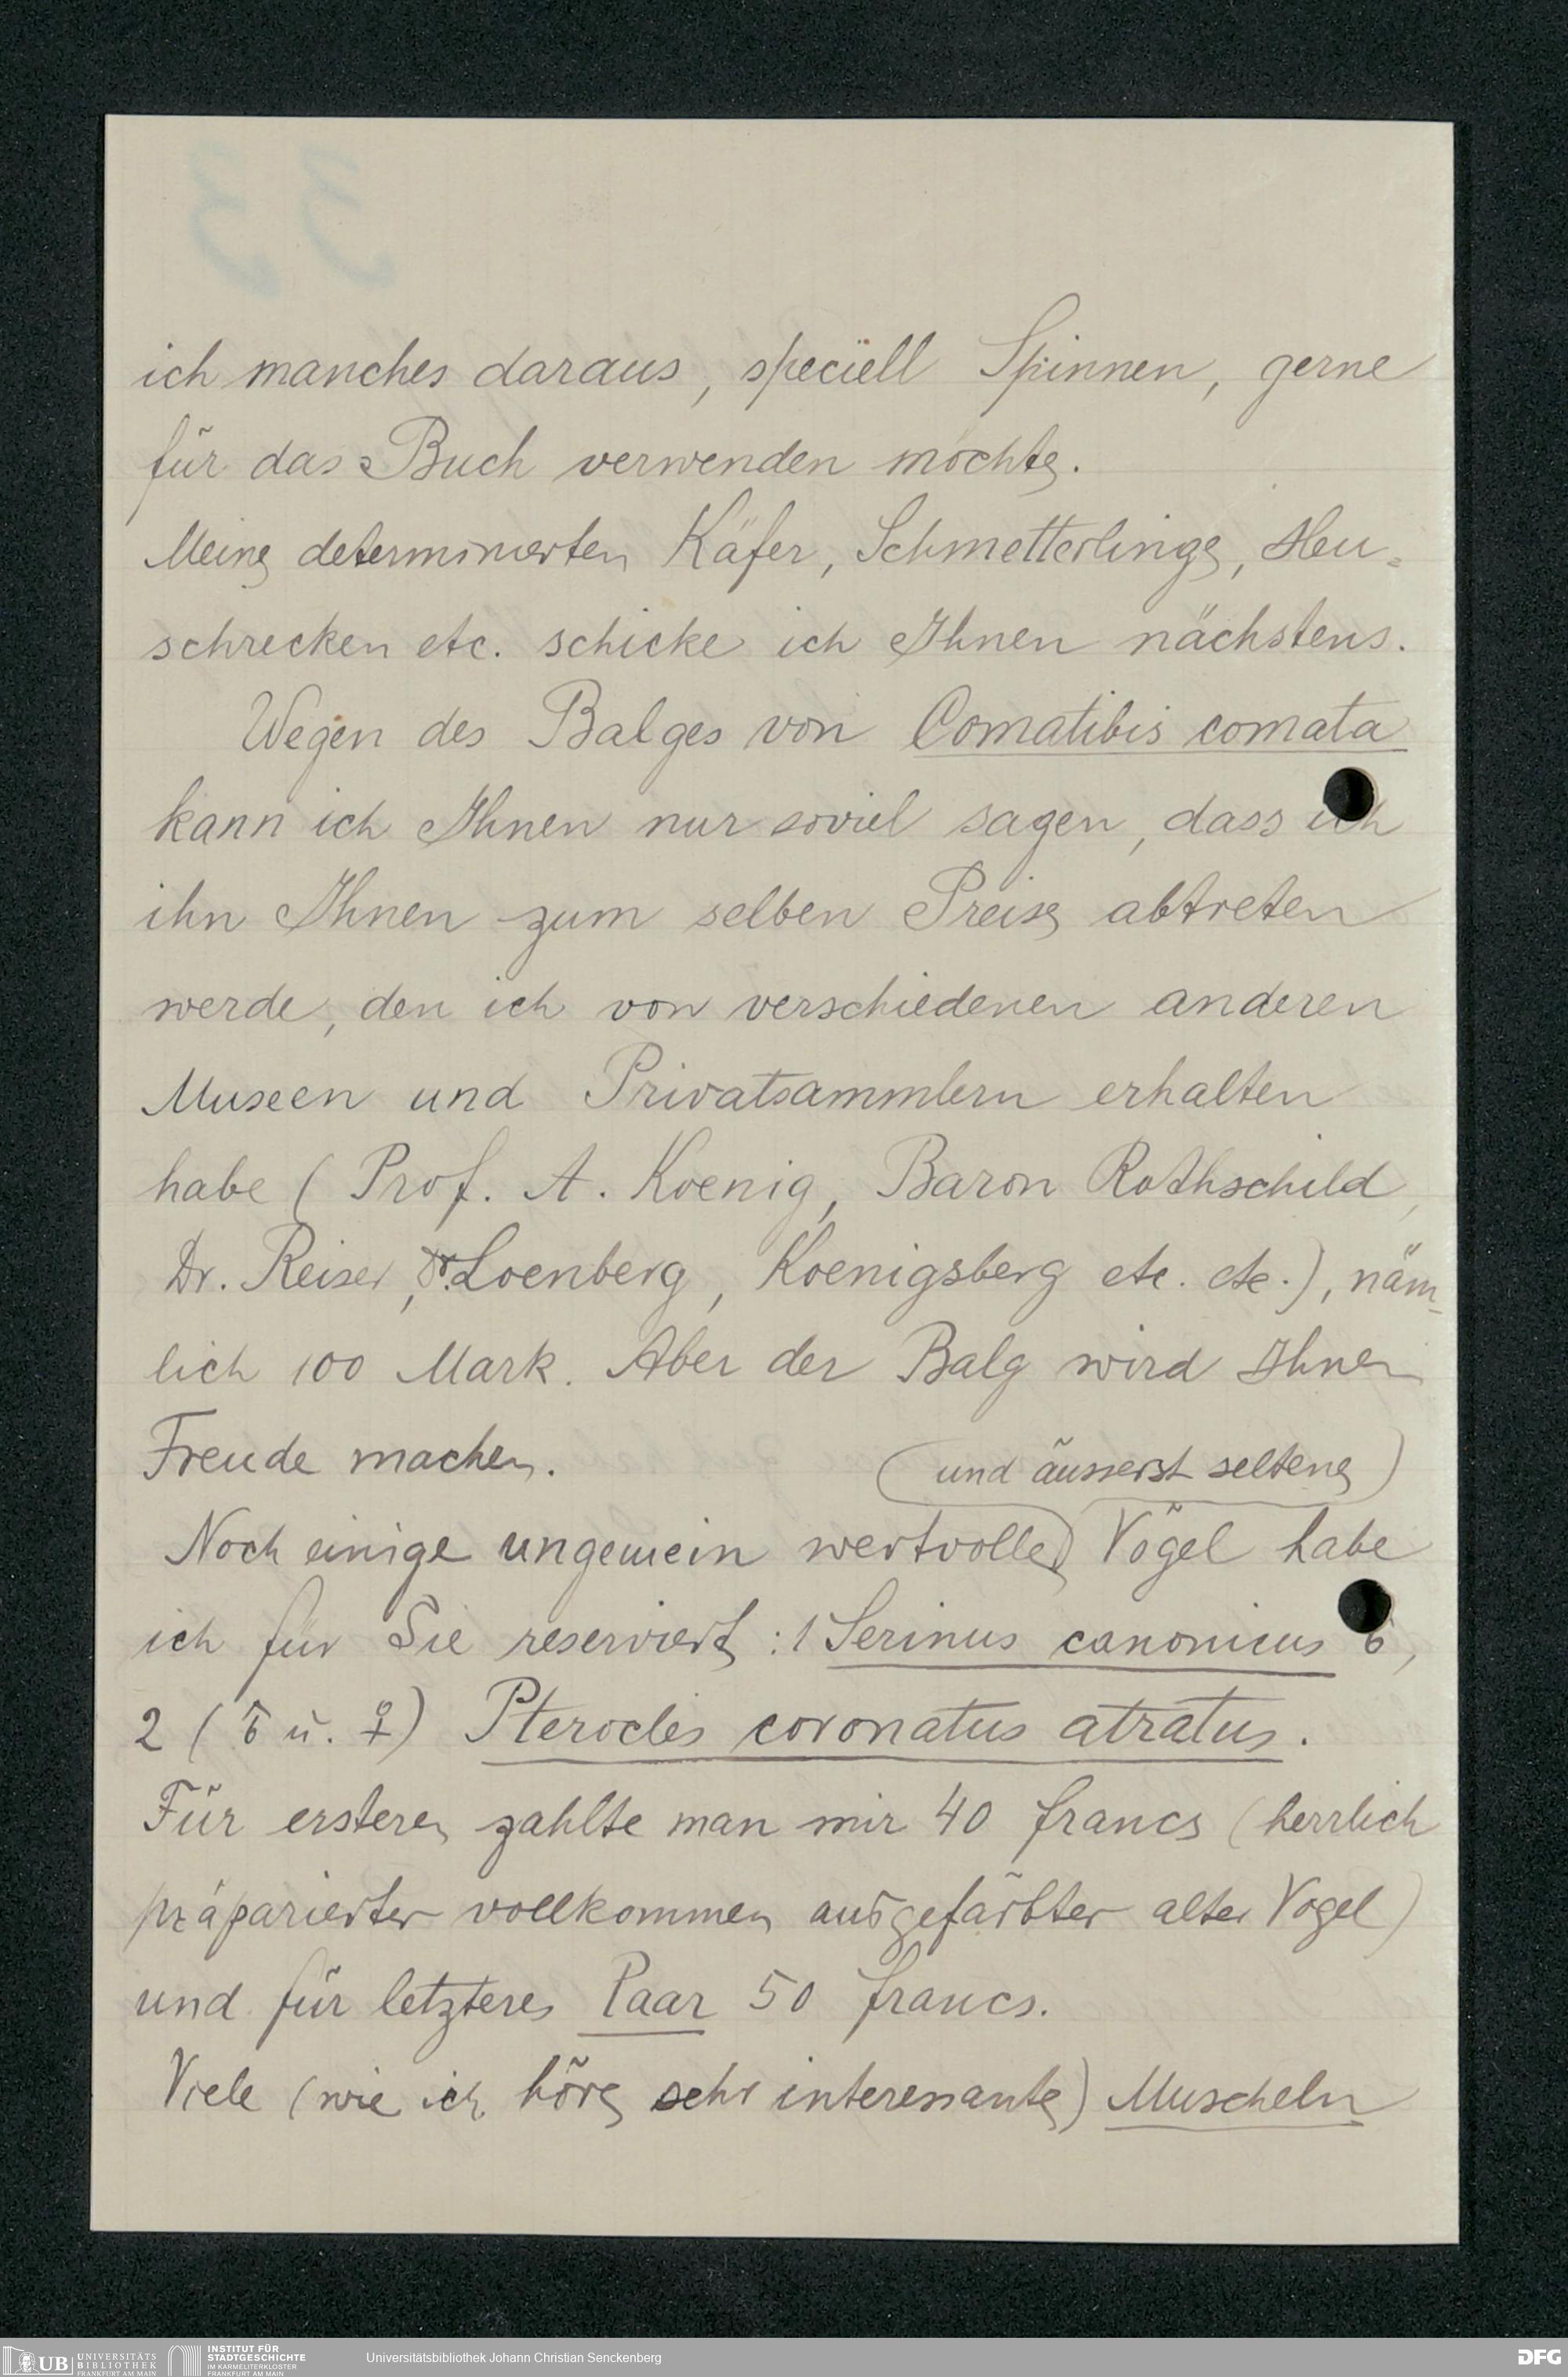 ich manches daraus, speciell Spinnen, gerne
für das Buch verwenden möchte.
Meine determinierten Käfer, Schmetterlinge, Heu=
schrecken etc. schicke ich Ihnen nächstens.
Wegen des Balges von Comatibis comata
kann ich Ihnen nur soviel sagen, dass ich
ihn Ihnen zum selben Preise abtreten
werde, den ich von verschiedenen anderen
Museen und Privatsammlern erhalten
habe (Prof. A. Koenig, Baron Rothschild,
Dr. Reiser, Dr. Loenberg, Koenigsberg etc. etc.), näm-
lich 100 Mark. Aber der Balg wird Ihnen
Freude machen.
(und äusserst seltene)
Noch einige ungemein wertvolle Vögel habe
ich für Sie reserviert: 1 Serinus canonicus ♂,
2 (♂ u. ♀) Pterocles coronatus atratus.
Für ersteren zahlte man mir 40 francs (herrlich
präparierter vollkommen ausgefärbter alter Vogel)
und für letzteres Paar 50 francs.
Viele (wie ich höre sehr interessante) Muscheln
UB UNIVERSITÄTS
BIBLIOTHEK
FRANKFURT AM MAIN
INSTITUT FÜR
STADTGESCHICHTE
IM KARMELITERKLOSTER
FRANKFURT AM MAIN
Universitätsbibliothek Johann Christian Senckenberg
DFG